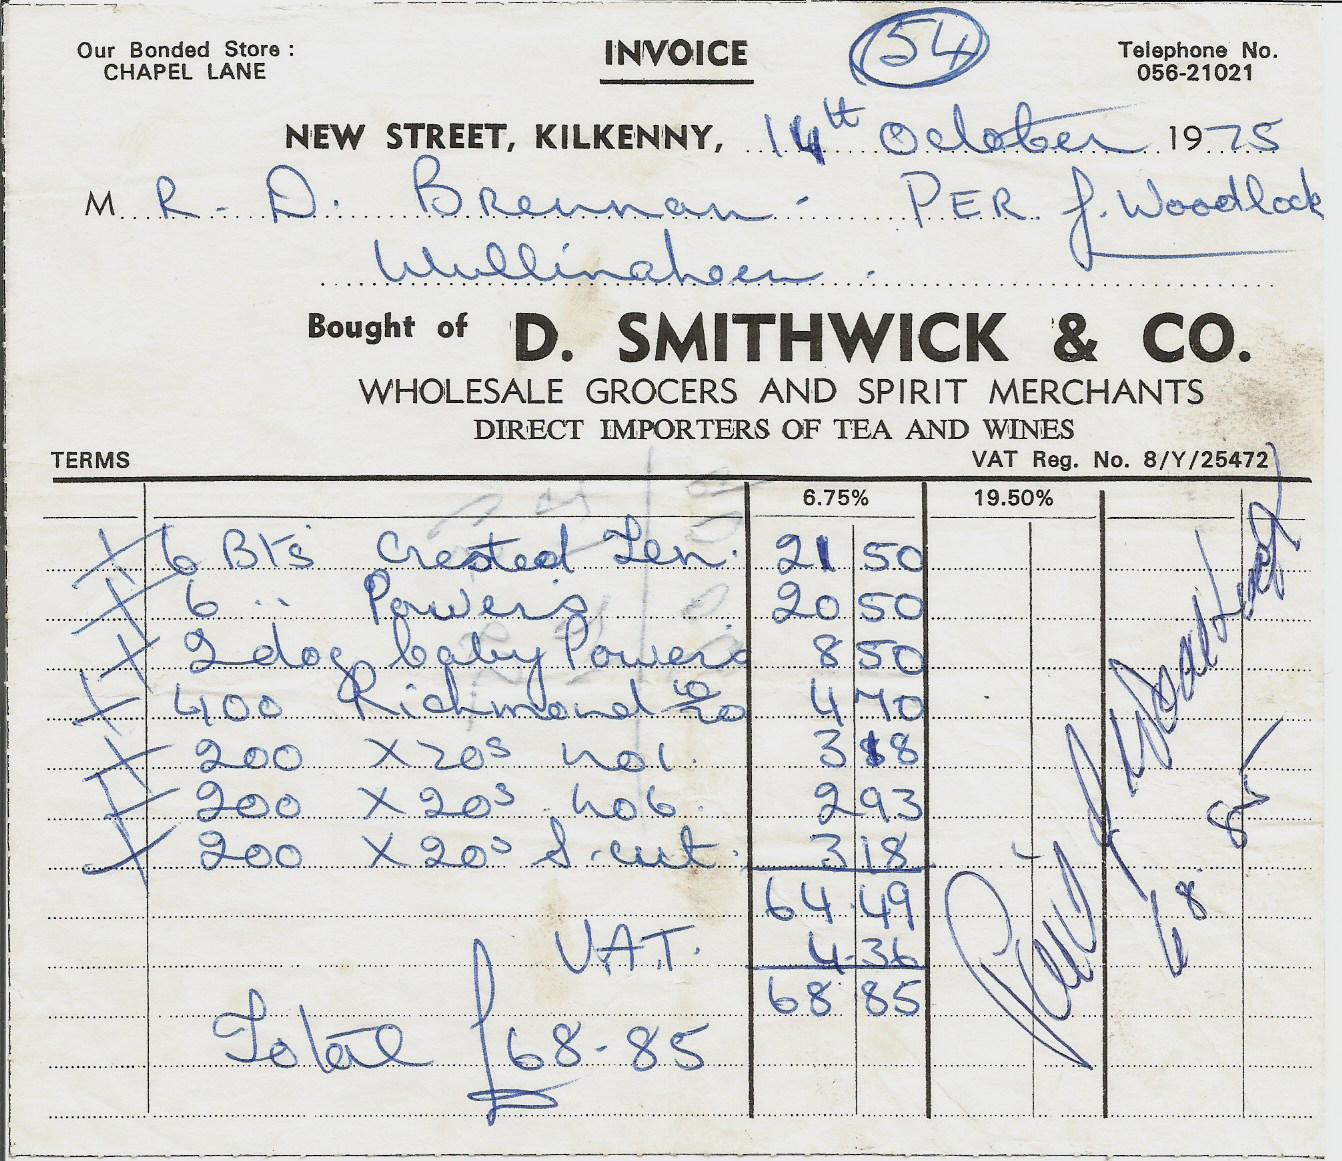 Our Bonded Store :
CHAPEL LANE
INVOICE
54
Telephone No.
056-21021
NEW STREET, KILKENNY, 14th October 1975
M R. D. Brennan. PER J. Woodlock
Mullinahone.
Bought of D. SMITHWICK & CO.
WHOLESALE GROCERS AND SPIRIT MERCHANTS
DIRECT IMPORTERS OF TEA AND WINES
TERMS VAT Reg. No. 8/Y/25472
6.75% 19.50%
6 Bts Crested Ten. 21 50
6 " Powers 20 50
2 doz baby Powers 8 50
400 Richmond 10/20 4 70
200 X 20s no 1. 3 18
200 X 20s no 6. 2 93
200 X 20s S. cut. 3 18
64.49
V.A.T. 4.36
68 85
Total £68-85
Paid J Woodlock
68 85